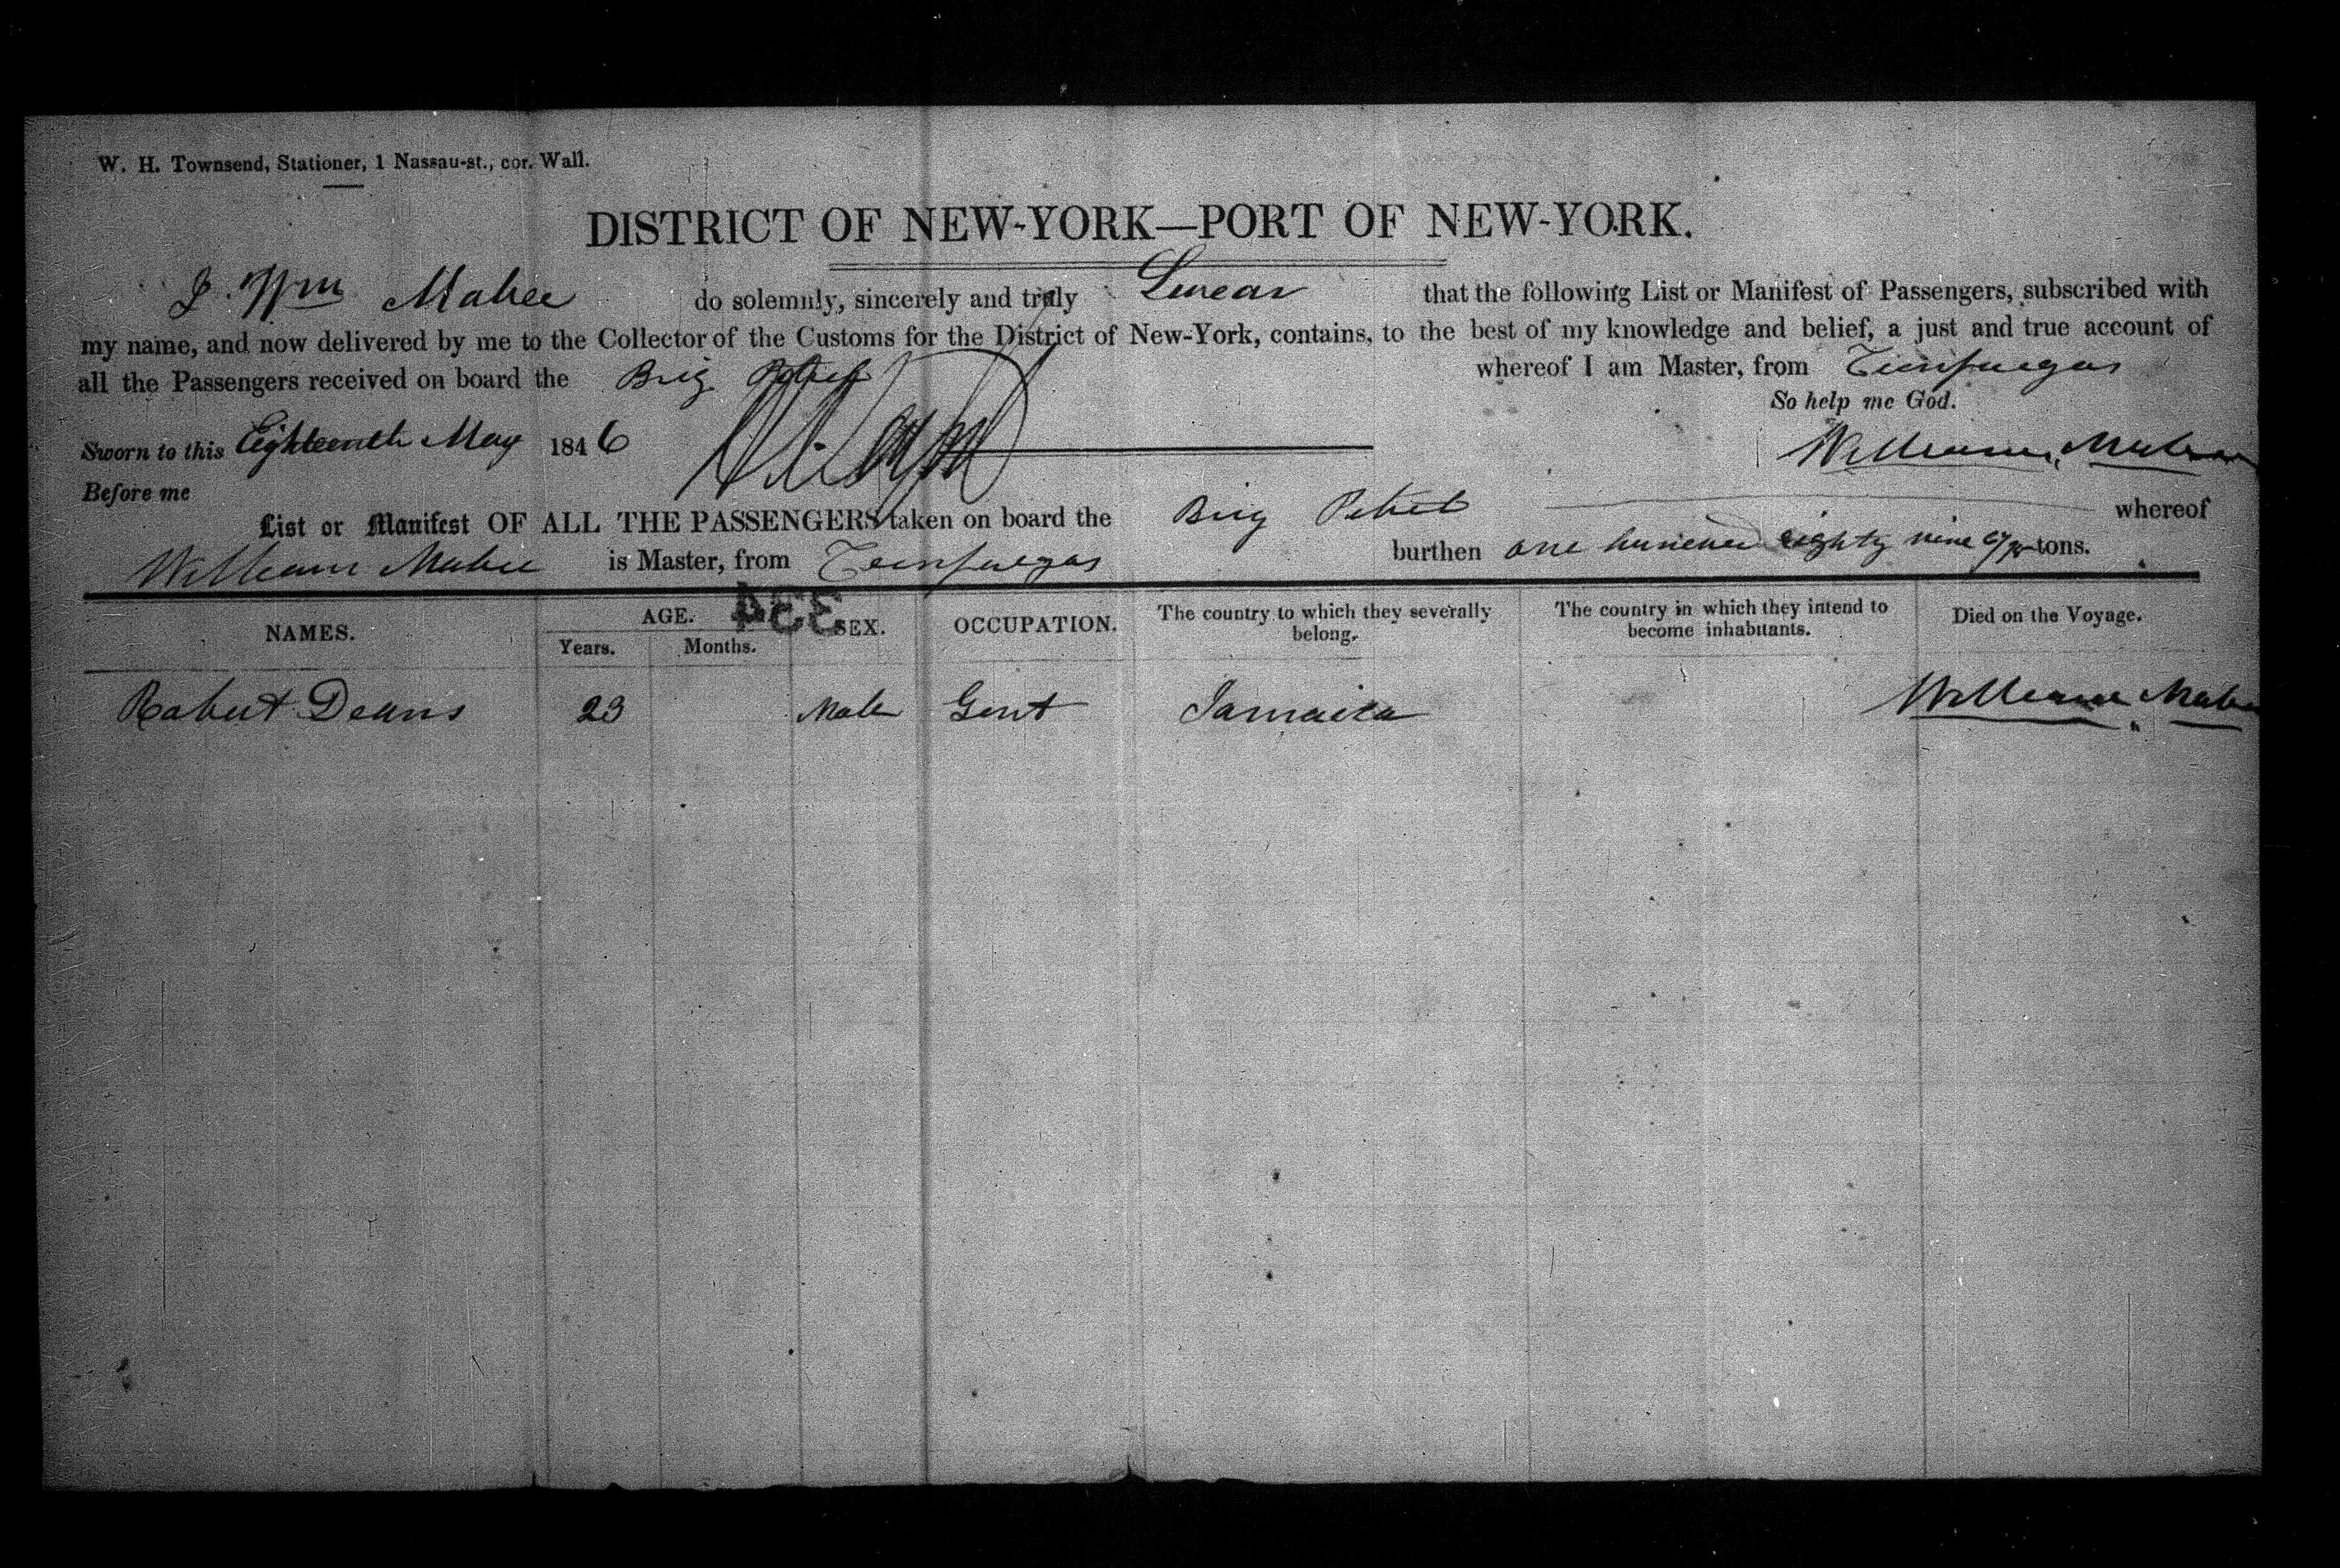 W. H. Townsend, Stationer, 1 Nassau-st., cor. Wall.
DISTRICT OF NEW-YORK—PORT OF NEW-YORK.
I Wm Mabee do solemnly, sincerely and truly Swear that the following List or Manifest of Passengers, subscribed with
my name, and now delivered by me to the Collector of the Customs for the District of New-York, contains, to the best of my knowledge and belief, a just and true account of
all the Passengers received on board the Brig whereof I am Master, from Cienfuegos
So help me God.
Sworn to this Eighteenth May 1846
William Mabee
Before me
List or Manifest OF ALL THE PASSENGERS taken on board the Brig whereof
William Mabee is Master, from Cienfuegos burthen one hundred eighty nine tons.
334
NAMES. AGE. SEX. OCCUPATION. The country to which they severally belong. The country in which they intend to become inhabitants. Died on the Voyage.
Years. Months.
Robert Deans 23 Male Gent Jamaica William Mabee